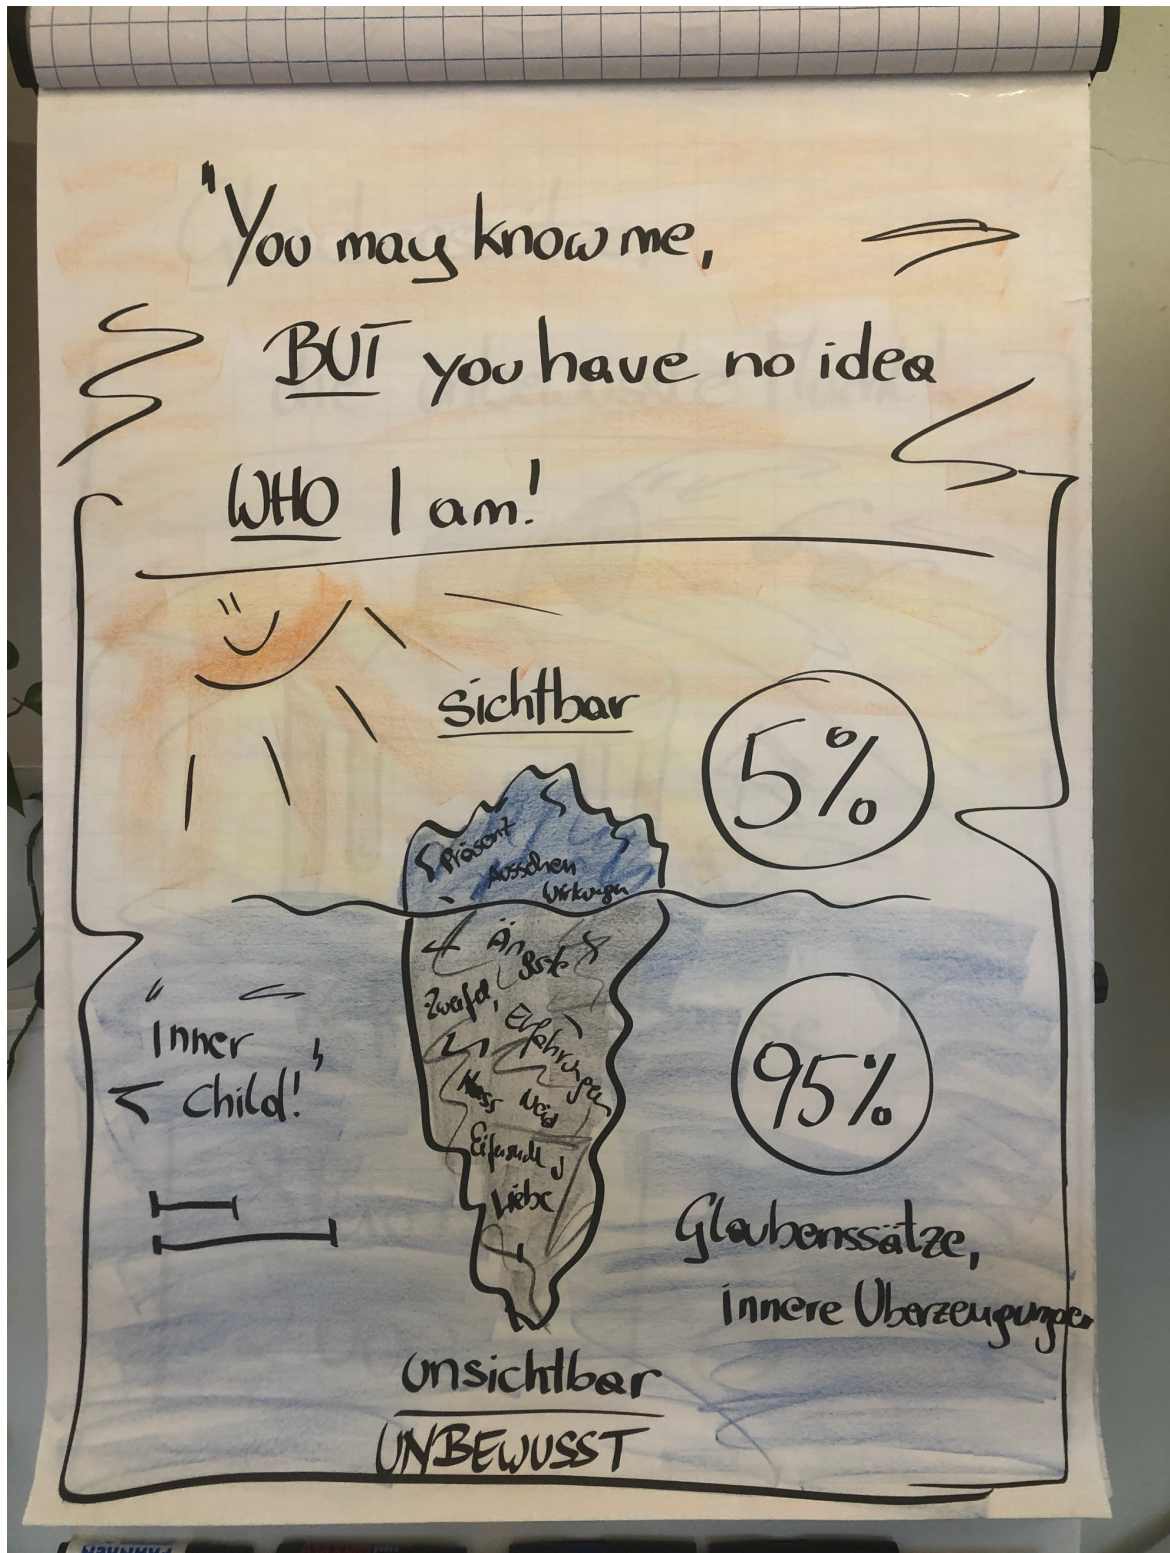 "You may know me,
BUT you have no idea
WHO I am!
sichtbar
5%
Präsent
Aussehen
Wirkungen
Ängste
Zweifel,
Erfahrungen
Hass
Neid
Eifersucht
Liebe
"Inner
Child!"
95%
Glaubenssätze,
innere Überzeugungen
unsichtbar
UNBEWUSST